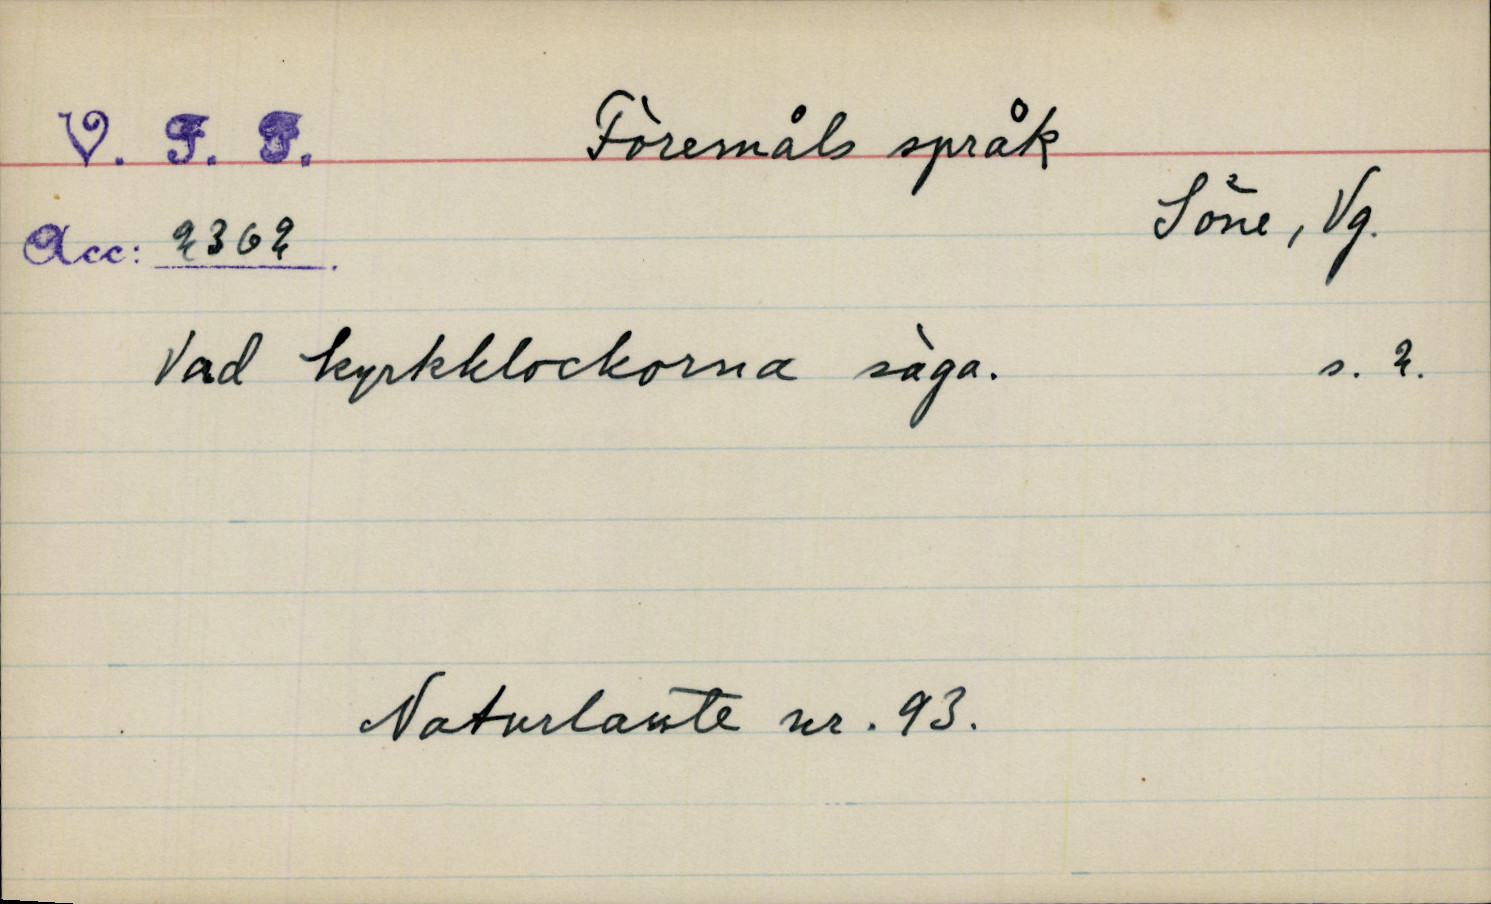 V. F. F. Föremåls språk
Söne, Vg.
Acc: 2362.
Vad kyrkklockorna säga. s. 2.
Naturlaute nr. 93.